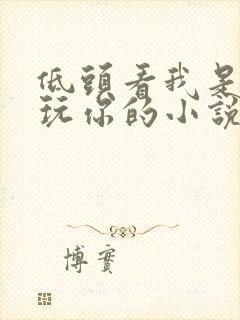 低頭看我是
玩你的小說
博實